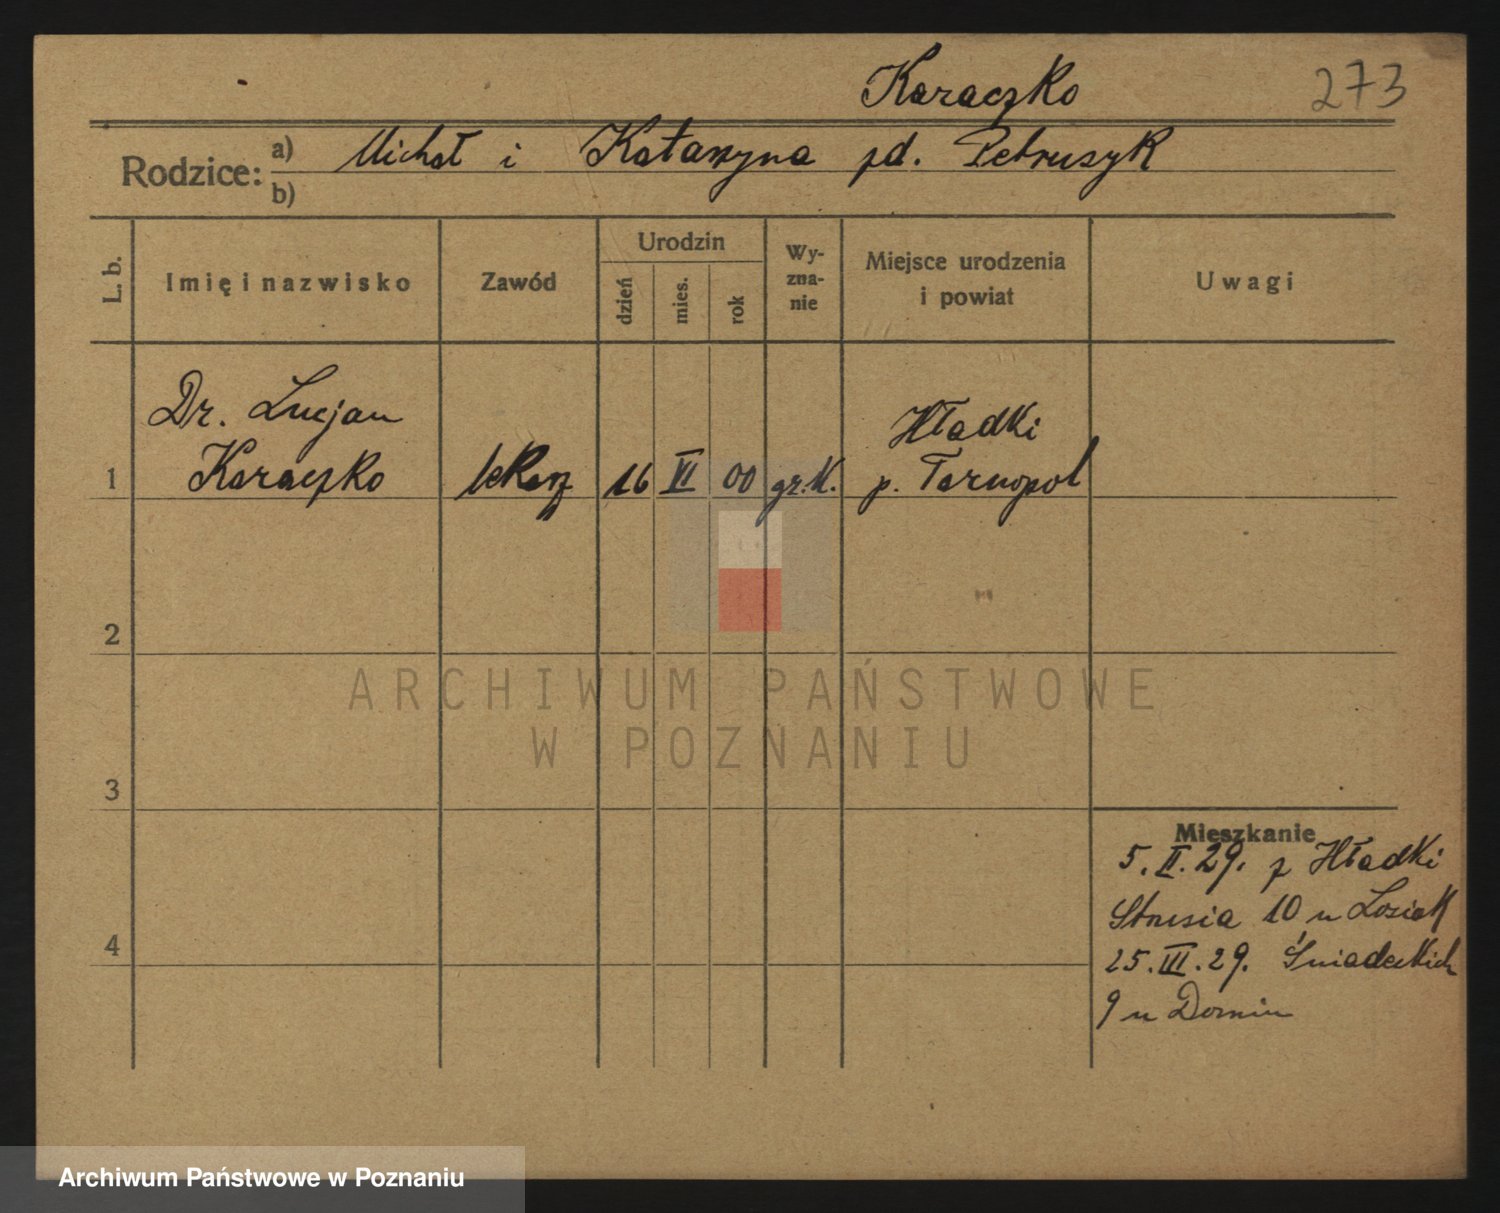 Karaczko 273
Rodzice: a) Michał i Katarzyna zd. Petruszyk
b)
L. b. Imię i nazwisko Zawód Urodzin dzień mies. rok Wyznanie Miejsce urodzenia i powiat Uwagi
Dr. Lucjan Hładki
1 Karaczko lekarz 16 VI 00 gr.k. p. Tarnopol
2
ARCHIWUM PAŃSTWOWE
W POZNANIU
3
Mieszkanie
5. II. 29. z Hładki
Strusia 10 u Losiak
4
25. III. 29. Śniadeckich
9 u
Archiwum Państwowe w Poznaniu